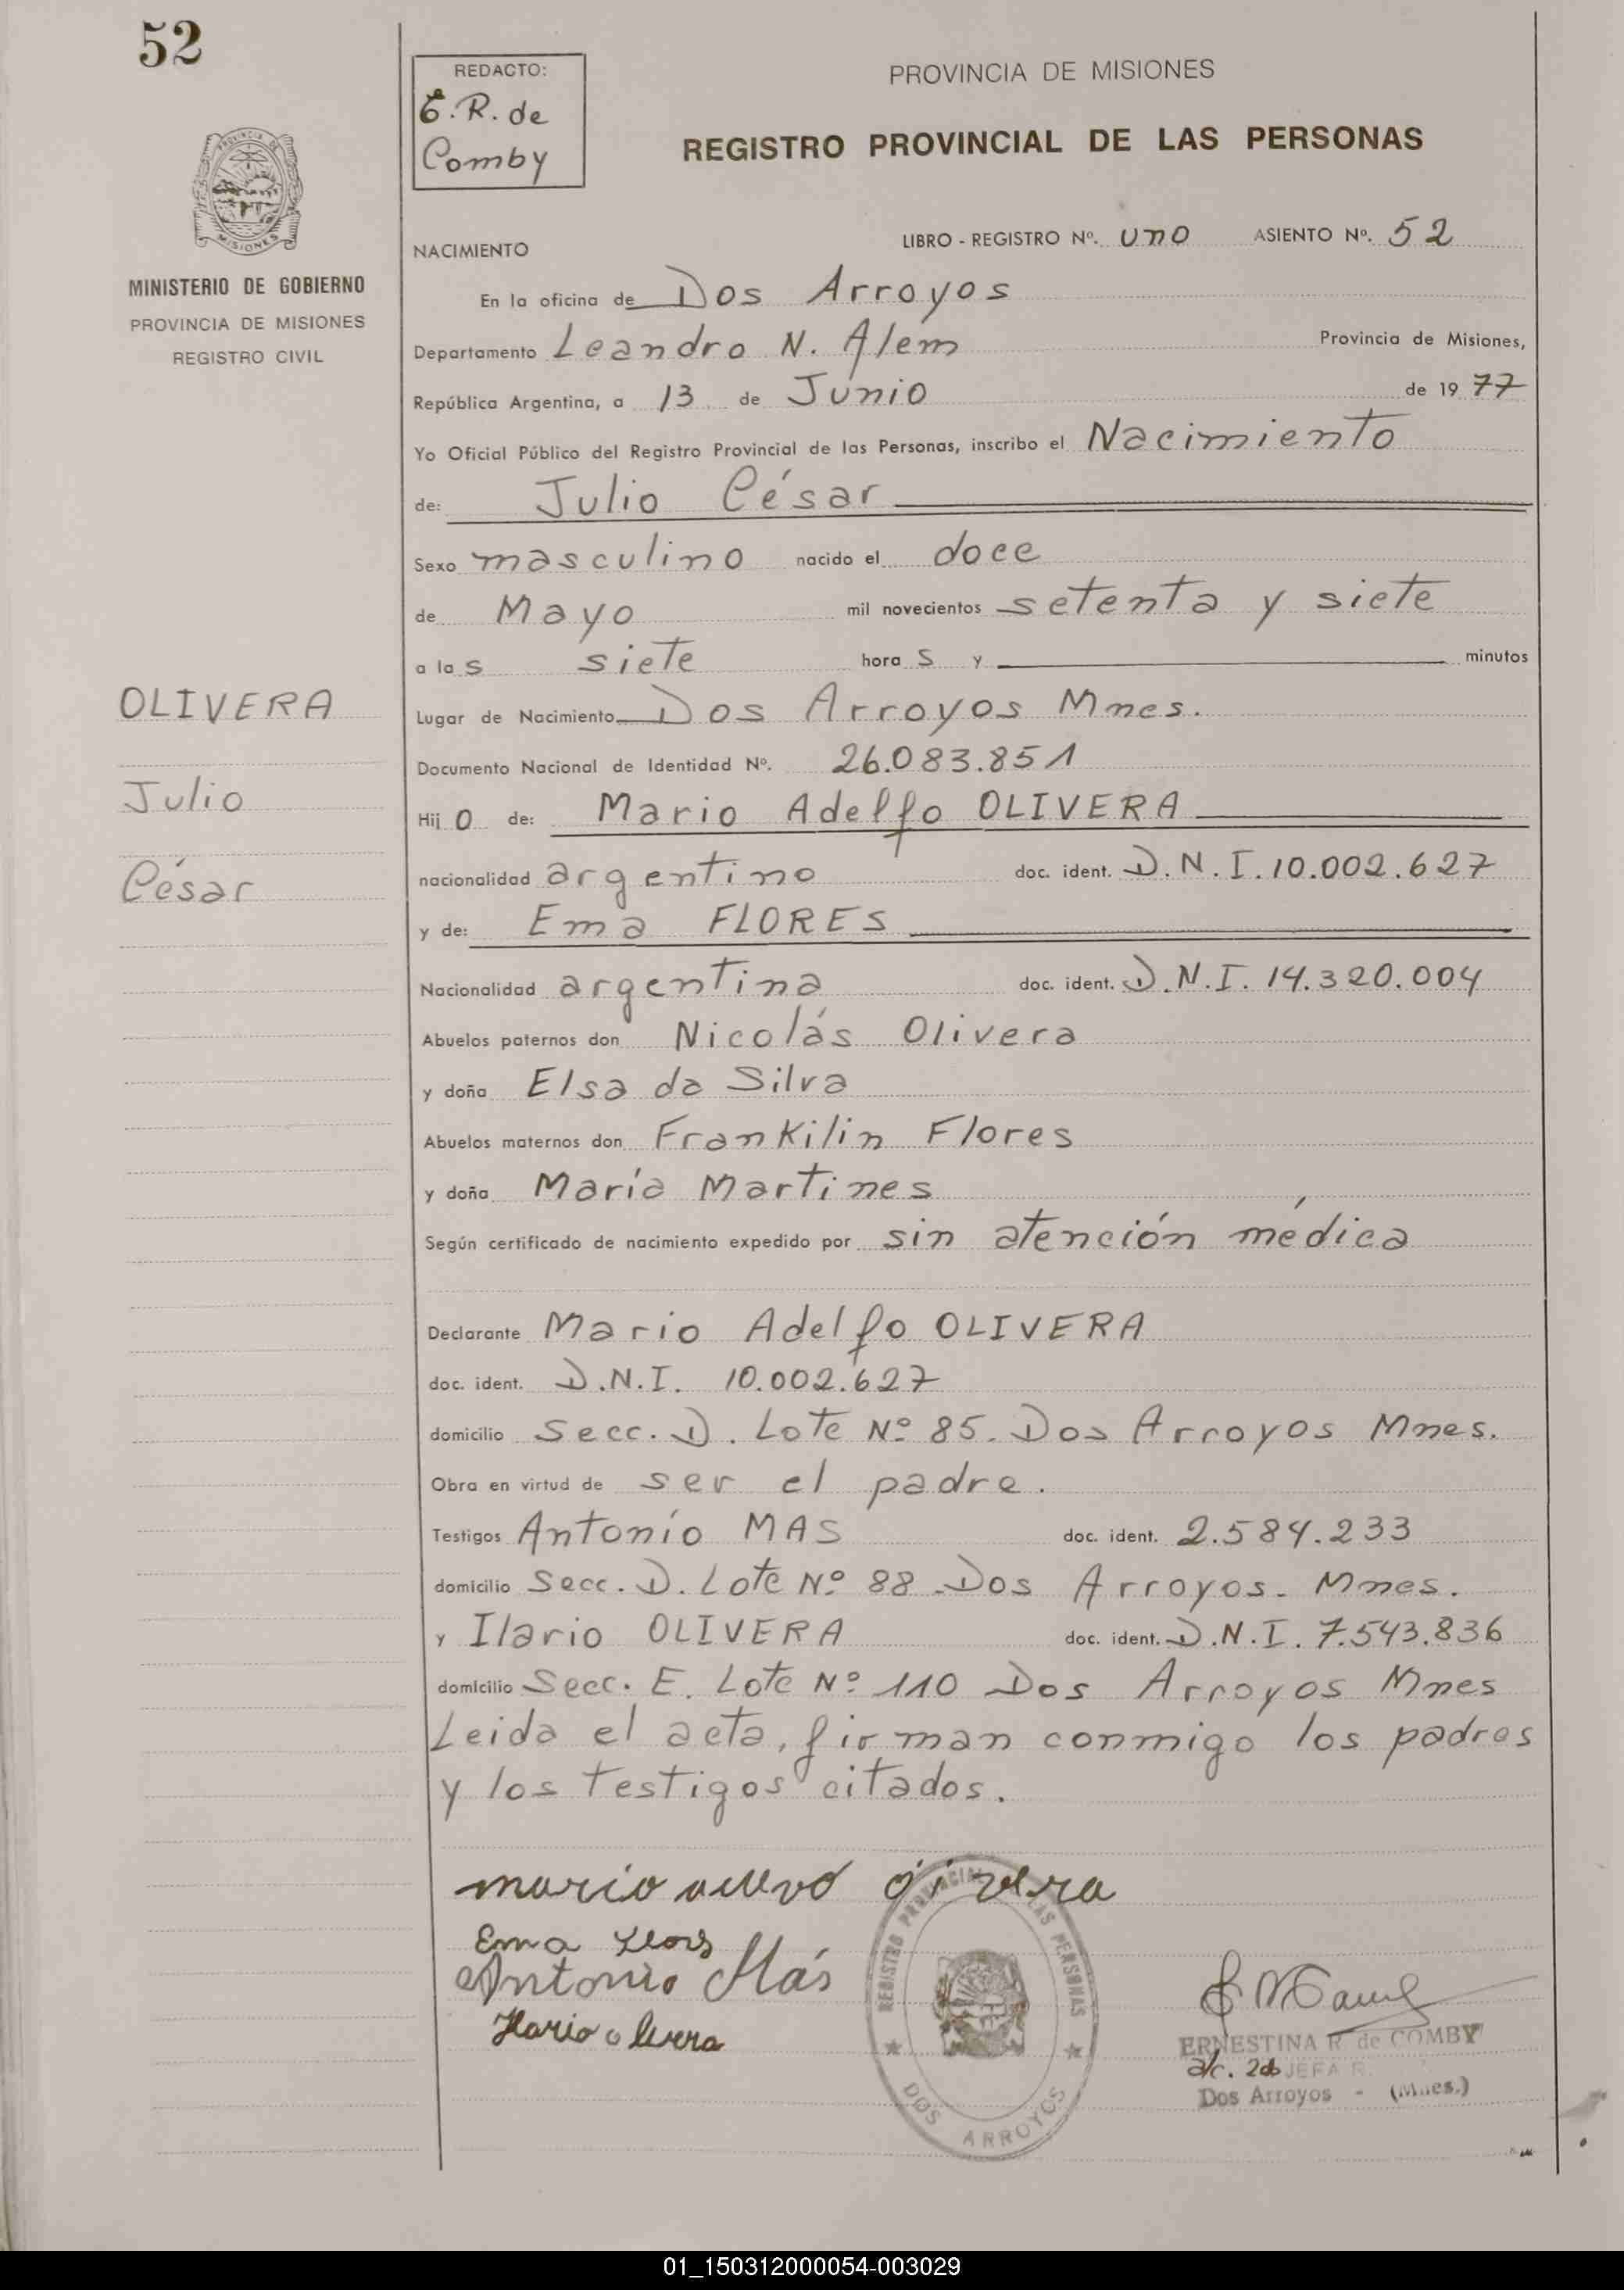 52
REDACTO:
E.R. de
Comby
PROVINCIA DE MISIONES
REGISTRO PROVINCIAL DE LAS PERSONAS
MISIONES
MINISTERIO DE GOBIERNO
PROVINCIA DE MISIONES
REGISTRO CIVIL
OLIVERA
Julio
César
NACIMIENTO
LIBRO - REGISTRO Nº. uno ASIENTO Nº. 52
En la oficina de Dos Arroyos
Departamento Leandro N. Alem Provincia de Misiones,
República Argentina, a 13 de Junio de 1977
Yo Oficial Público del Registro Provincial de las Personas, inscribo el Nacimiento
de: Julio César
Sexo masculino nacido el doce
de Mayo mil novecientos setenta y siete
a las siete horas y minutos
Lugar de Nacimiento Dos Arroyos Mnes.
Documento Nacional de Identidad Nº. 26.083.851
Hijo de: Mario Adelfo OLIVERA
nacionalidad argentino doc. ident. D.N.I. 10.002.627
y de: Ema FLORES
Nacionalidad argentina doc. ident. D.N.I. 14.320.004
Abuelos paternos don Nicolás Olivera
y doña Elsa da Silva
Abuelos maternos don Frankilin Flores
y doña María Martines
Según certificado de nacimiento expedido por sin atención médica
Declarante Mario Adelfo OLIVERA
doc. ident. D.N.I. 10.002.627
domicilio Secc. D. Lote Nº 85. Dos Arroyos Mnes.
Obra en virtud de ser el padre.
Testigos Antonio MAS doc. ident. 2.584.233
domicilio Secc. D. Lote Nº 88 - Dos Arroyos - Mnes.
y Ilario OLIVERA doc. ident. D.N.I. 7.543.836
domicilio Secc. E. Lote Nº 110 Dos Arroyos Mnes
Leida el acta, firman conmigo los padres
y los testigos citados.
mario
Ema
Antonio Más
Ilario olivera
REGISTRO PROVINCIAL LAS PERSONAS
DOS ARROYOS
ERNESTINA R. de COMBY
a/c. JEFA R.
Dos Arroyos - (Mnes.)
01_150312000054-003029